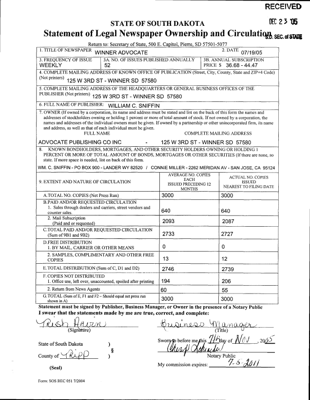 RECEIVED
DEC 23 '05
S.D. SEC. OF STATE
STATE OF SOUTH DAKOTA
Statement of Legal Newspaper Ownership and Circulation
Return to: Secretary of State, 500 E. Capitol, Pierre, SD 57501-5077
1. TITLE OF NEWSPAPER WINNER ADVOCATE
2. DATE 07/18/05
3. FREQUENCY OF ISSUE WEEKLY
3A. NO. OF ISSUES PUBLISHED ANNUALLY 52
3B. ANNUAL SUBSCRIPTION PRICE $ 36.68 - 44.47
4. COMPLETE MAILING ADDRESS OF KNOWN OFFICE OF PUBLICATION (Street, City, County, State and ZIP+4 Code)
(Not printers) 125 W 3RD ST - WINNER SD 57580
5. COMPLETE MAILING ADDRESS OF THE HEADQUARTERS OR GENERAL BUSINESS OFFICES OF THE
PUBLISHER (Not printers) 125 W 3RD ST - WINNER SD 57580
6. FULL NAME OF PUBLISHER: WILLIAM C. SNIFFIN
7. OWNER (If owned by a corporation, its name and address must be stated and also immediately thereunder the names and
addresses of stockholders owning or holding 1 percent or more of total amount of stock. If not owned by a corporation, the
names and addresses of the individual owners must be given. If owned by a partnership or other unincorporated firm, its name
and address, as well as that of each individual must be given.
FULL NAME COMPLETE MAILING ADDRESS
ADVOCATE PUBLISHING CO INC - 125 W 3RD ST - WINNER SD 57580
8. KNOWN BONDHOLDERS, MORTGAGES, AND OTHER SECURITY HOLDERS OWNING OR HOLDING 1
PERCENT OR MORE OF TOTAL AMOUNT OF BONDS, MORTGAGES OR OTHER SECURITIES (If there are none, so
state. If more space is needed, list on back of this form.
WM. C. SNIFFIN - PO BOX 900 - LANDER WY 82520 / CONNIE MILLER - 2262 MERIDAN AV - SAN JOSE, CA 95124
9. EXTENT AND NATURE OF CIRCULATION
AVERAGE NO. COPIES EACH ISSUED PRECEDING 12 MONTHS
ACTUAL NO. COPIES ISSUED NEAREST TO FILING DATE
A. TOTAL NO. COPIES (Net Press Run) 3000 3000
B. PAID AND/OR REQUESTED CIRCULATION
1. Sales through dealers and carriers, street vendors and counter sales. 640 640
2. Mail Subscription (Paid and or requested) 2093 2087
C. TOTAL PAID AND/OR REQUESTED CIRCULATION (Sum of 9B1 and 9B2) 2733 2727
D. FREE DISTRIBUTION
1. BY MAIL, CARRIER OR OTHER MEANS 0 0
2. SAMPLES, COMPLIMENTARY AND OTHER FREE COPIES 13 12
E. TOTAL DISTRIBUTION (Sum of C, D1 and D2) 2746 2739
F. COPIES NOT DISTRIBUTED
1. Office use, left over, unaccounted, spoiled after printing 194 206
2. Return from News Agents 60 55
G. TOTAL (Sum of E, F1 and F2 - Should equal net press run shown in A) 3000 3000
Statement must be signed by Publisher, Business Manager, or Owner in the presence of a Notary Public
I swear that the statements made by me are true, correct, and complete:
Business Manager
(Signature) (Title)
State of South Dakota )
County of TRIPP )
§
Sworn to before me this 7th Day of Nov, 2005
Notary Public
(Seal) My commission expires: 7-5-2011
Form: SOS REC 051 7/2004